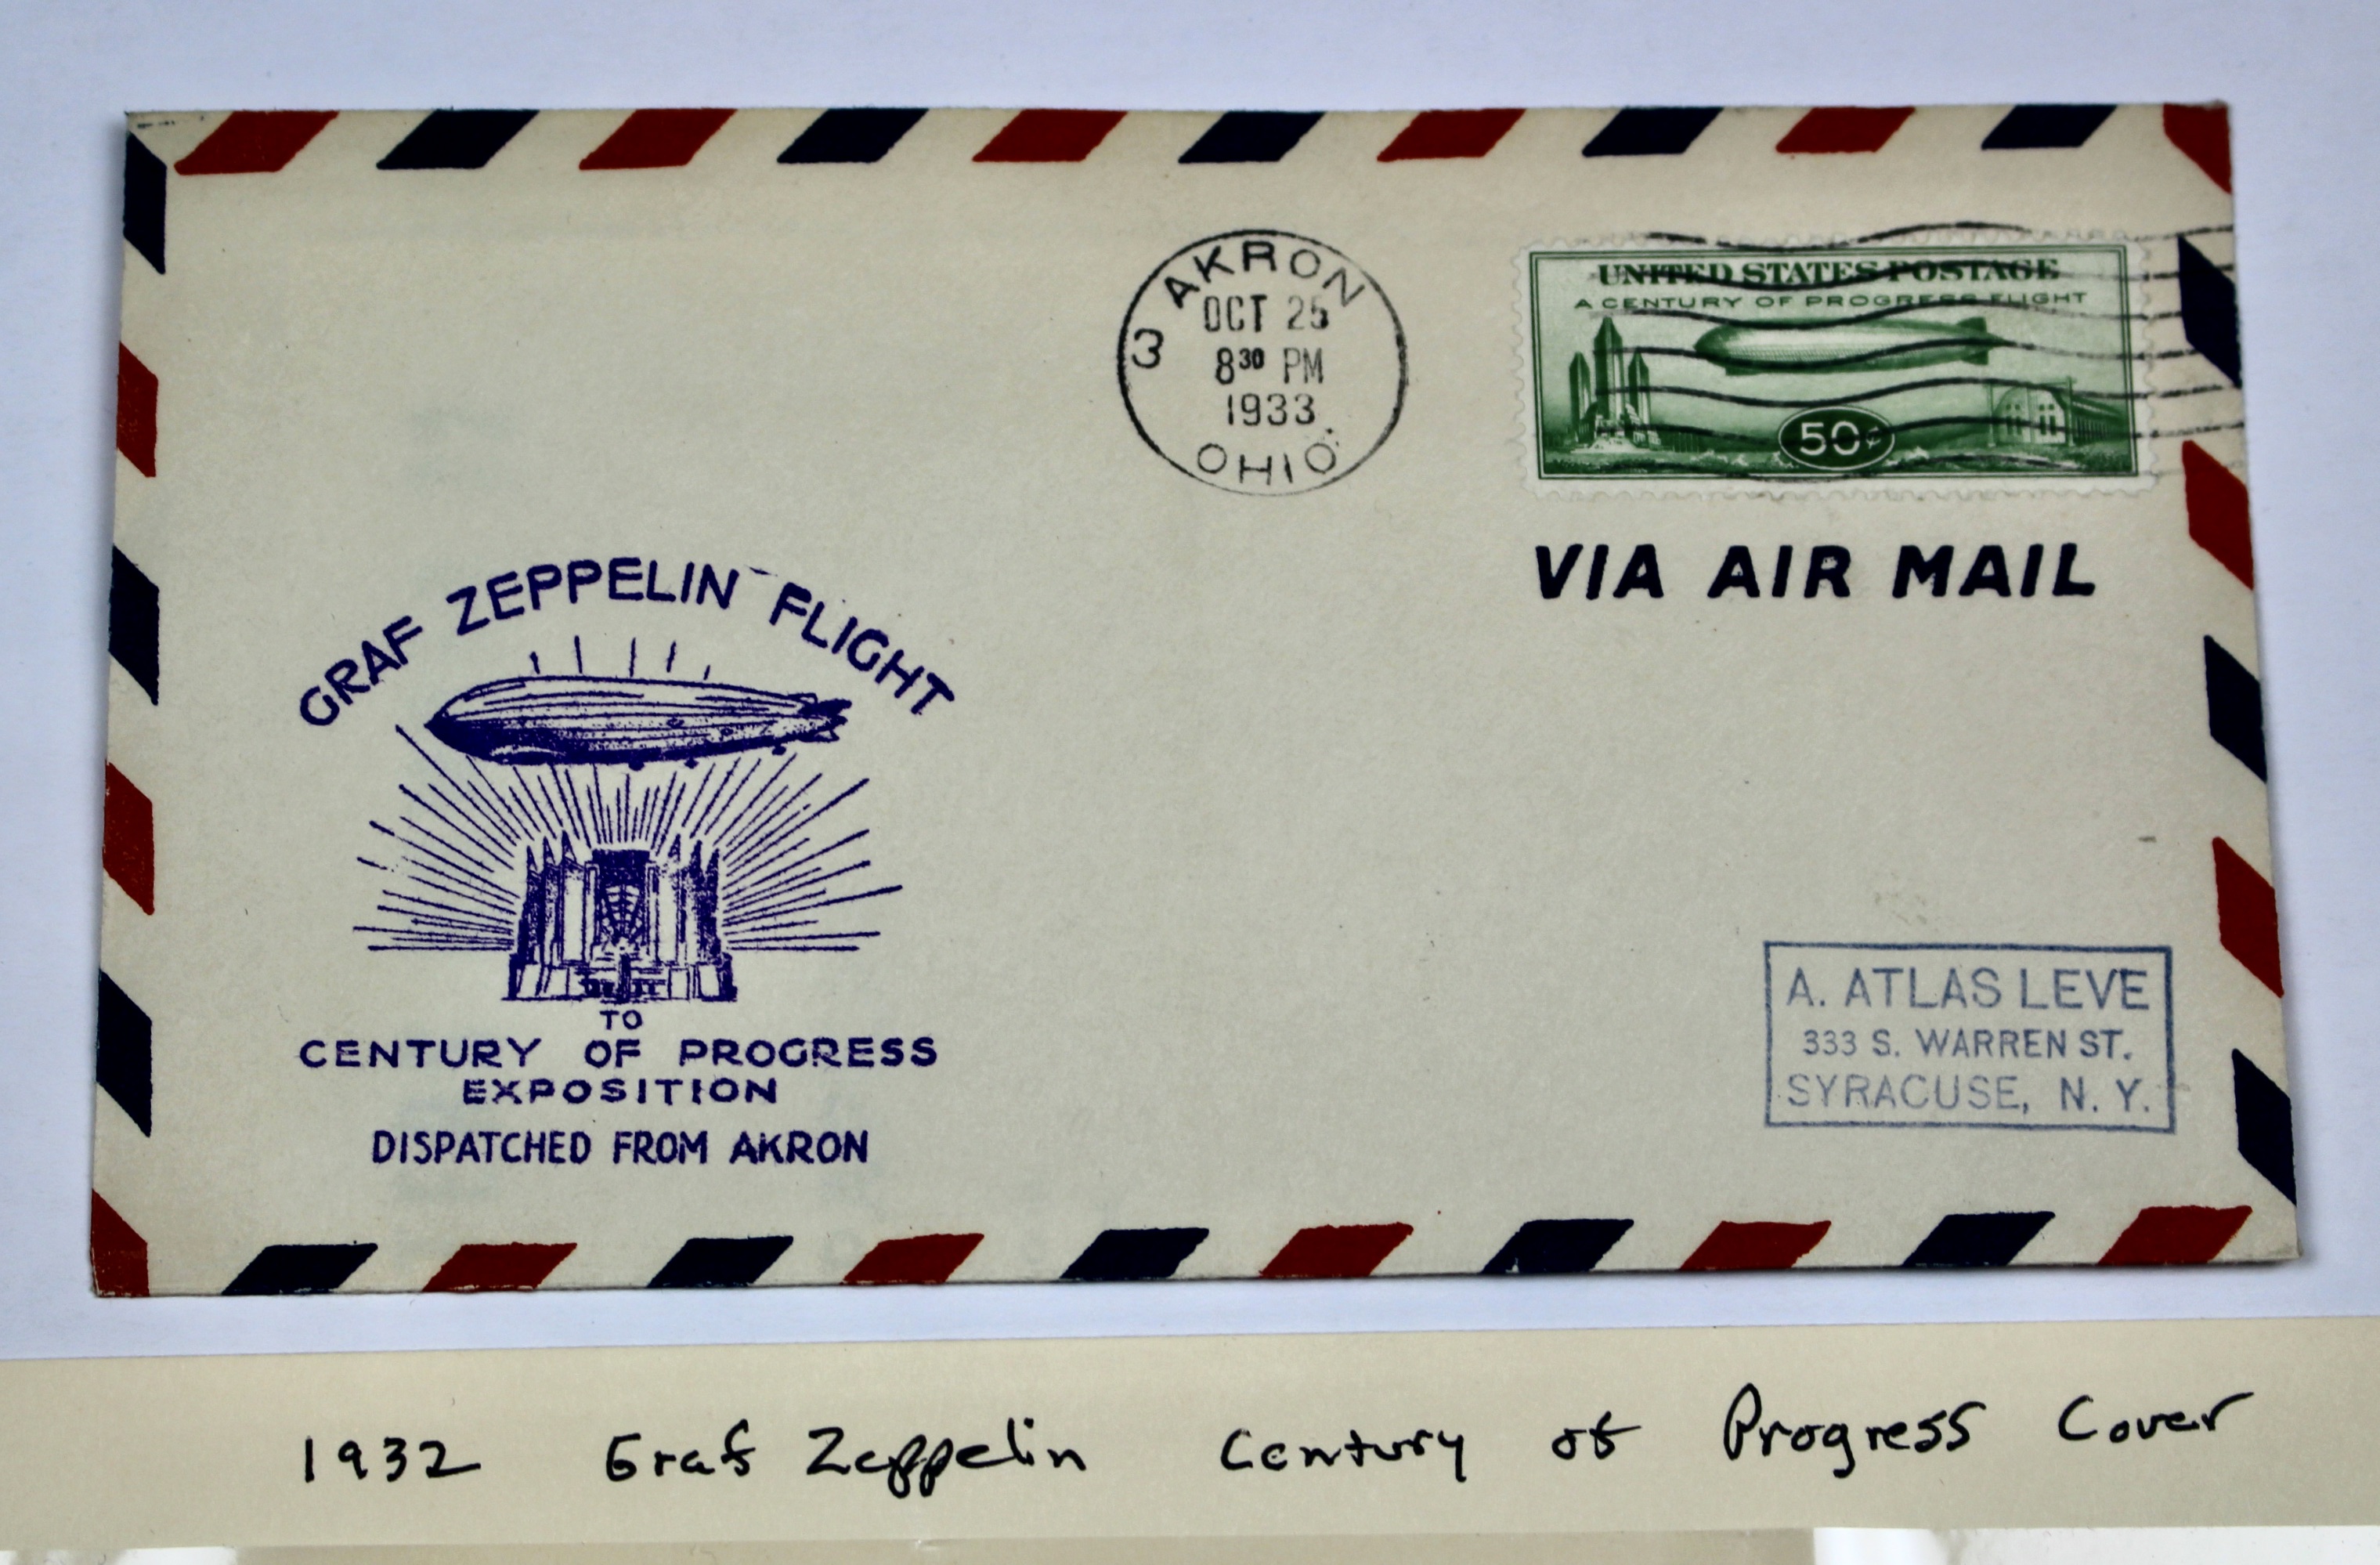 3 AKRON
OCT 25
8³⁰ PM
1933
OHIO
UNITED STATES POSTAGE
A CENTURY OF PROGRESS FLIGHT
50¢
VIA AIR MAIL
GRAF ZEPPELIN FLIGHT
TO
CENTURY OF PROGRESS
EXPOSITION
DISPATCHED FROM AKRON
A. ATLAS LEVE
333 S. WARREN ST.
SYRACUSE, N. Y.
1932 Graf Zeppelin Century of Progress Cover